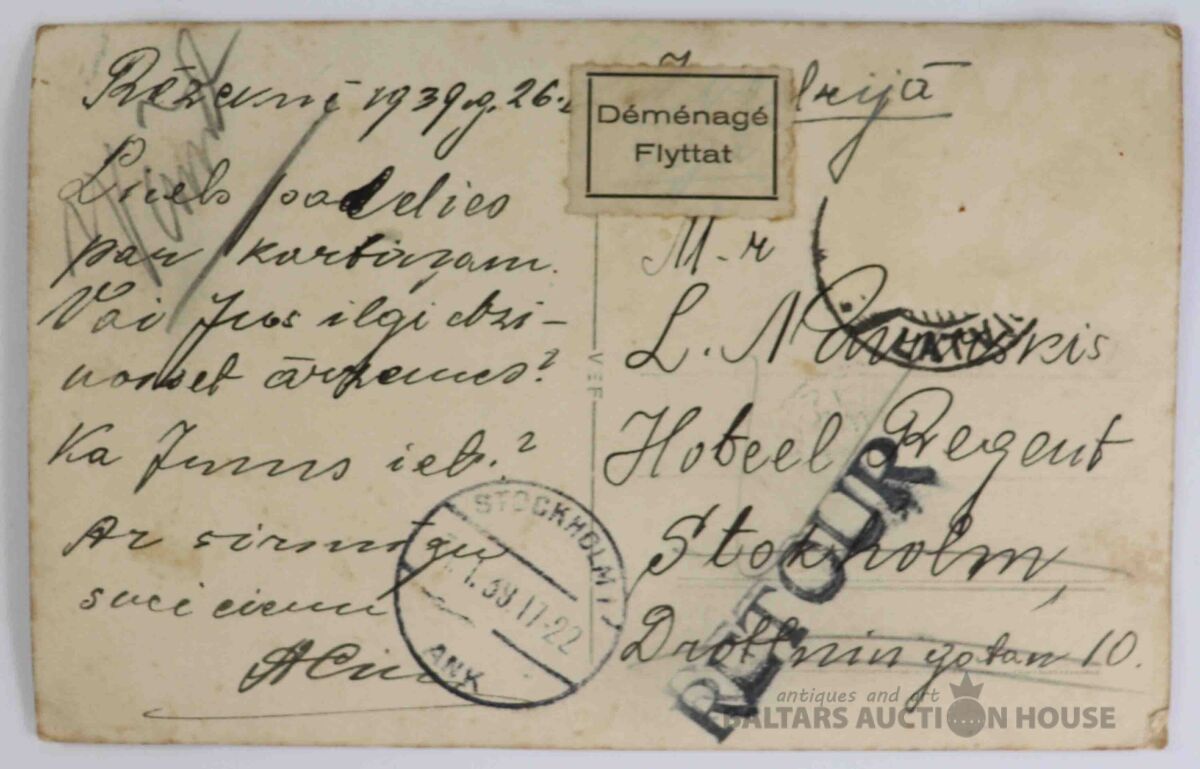 Rēzeknē 1939.g. 26.
Liels paldies
par kartiņam.
Vai Jus ilgi dzi-
vosiet ārzemes?
Ka Jums iet.?
Ar sirsnīgu
sveicienu
Déménagé
Flyttat
M-r
L.
Hoteel Regent
Stokholm,
Drottningatan 10.
VEF
LATVI
RETOUR
STOCKHOLM 1
1.39 17-22
ANK
antiques and art
BALTARS AUCTION HOUSE